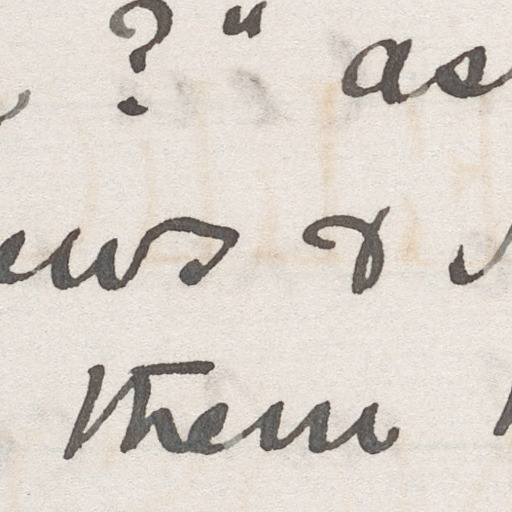 ?" as
ews &
them